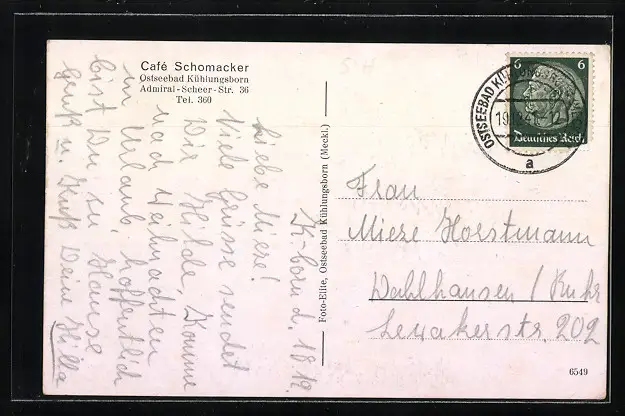 Café Schomacker
Ostseebad Kühlungsborn
Admiral-Scheer-Str. 36
Tel. 360
K-born d. 18.12.
Liebe Mieze!
Viele Grüsse sendet
Dir Hilde, Komme
nach Weihnachten
in Urlaub hoffentlich
bist Du zu Hause
Gruß u. Kuß Deine Hilla
Foto-Elite, Ostseebad Kühlungsborn (Meckl.)
6 6
Deutsches Reich
OSTSEEBAD KÜHLUNGSBORN
a
Frau
Mieze Horstmann
Dahlhausen / Ruhr
202
6549